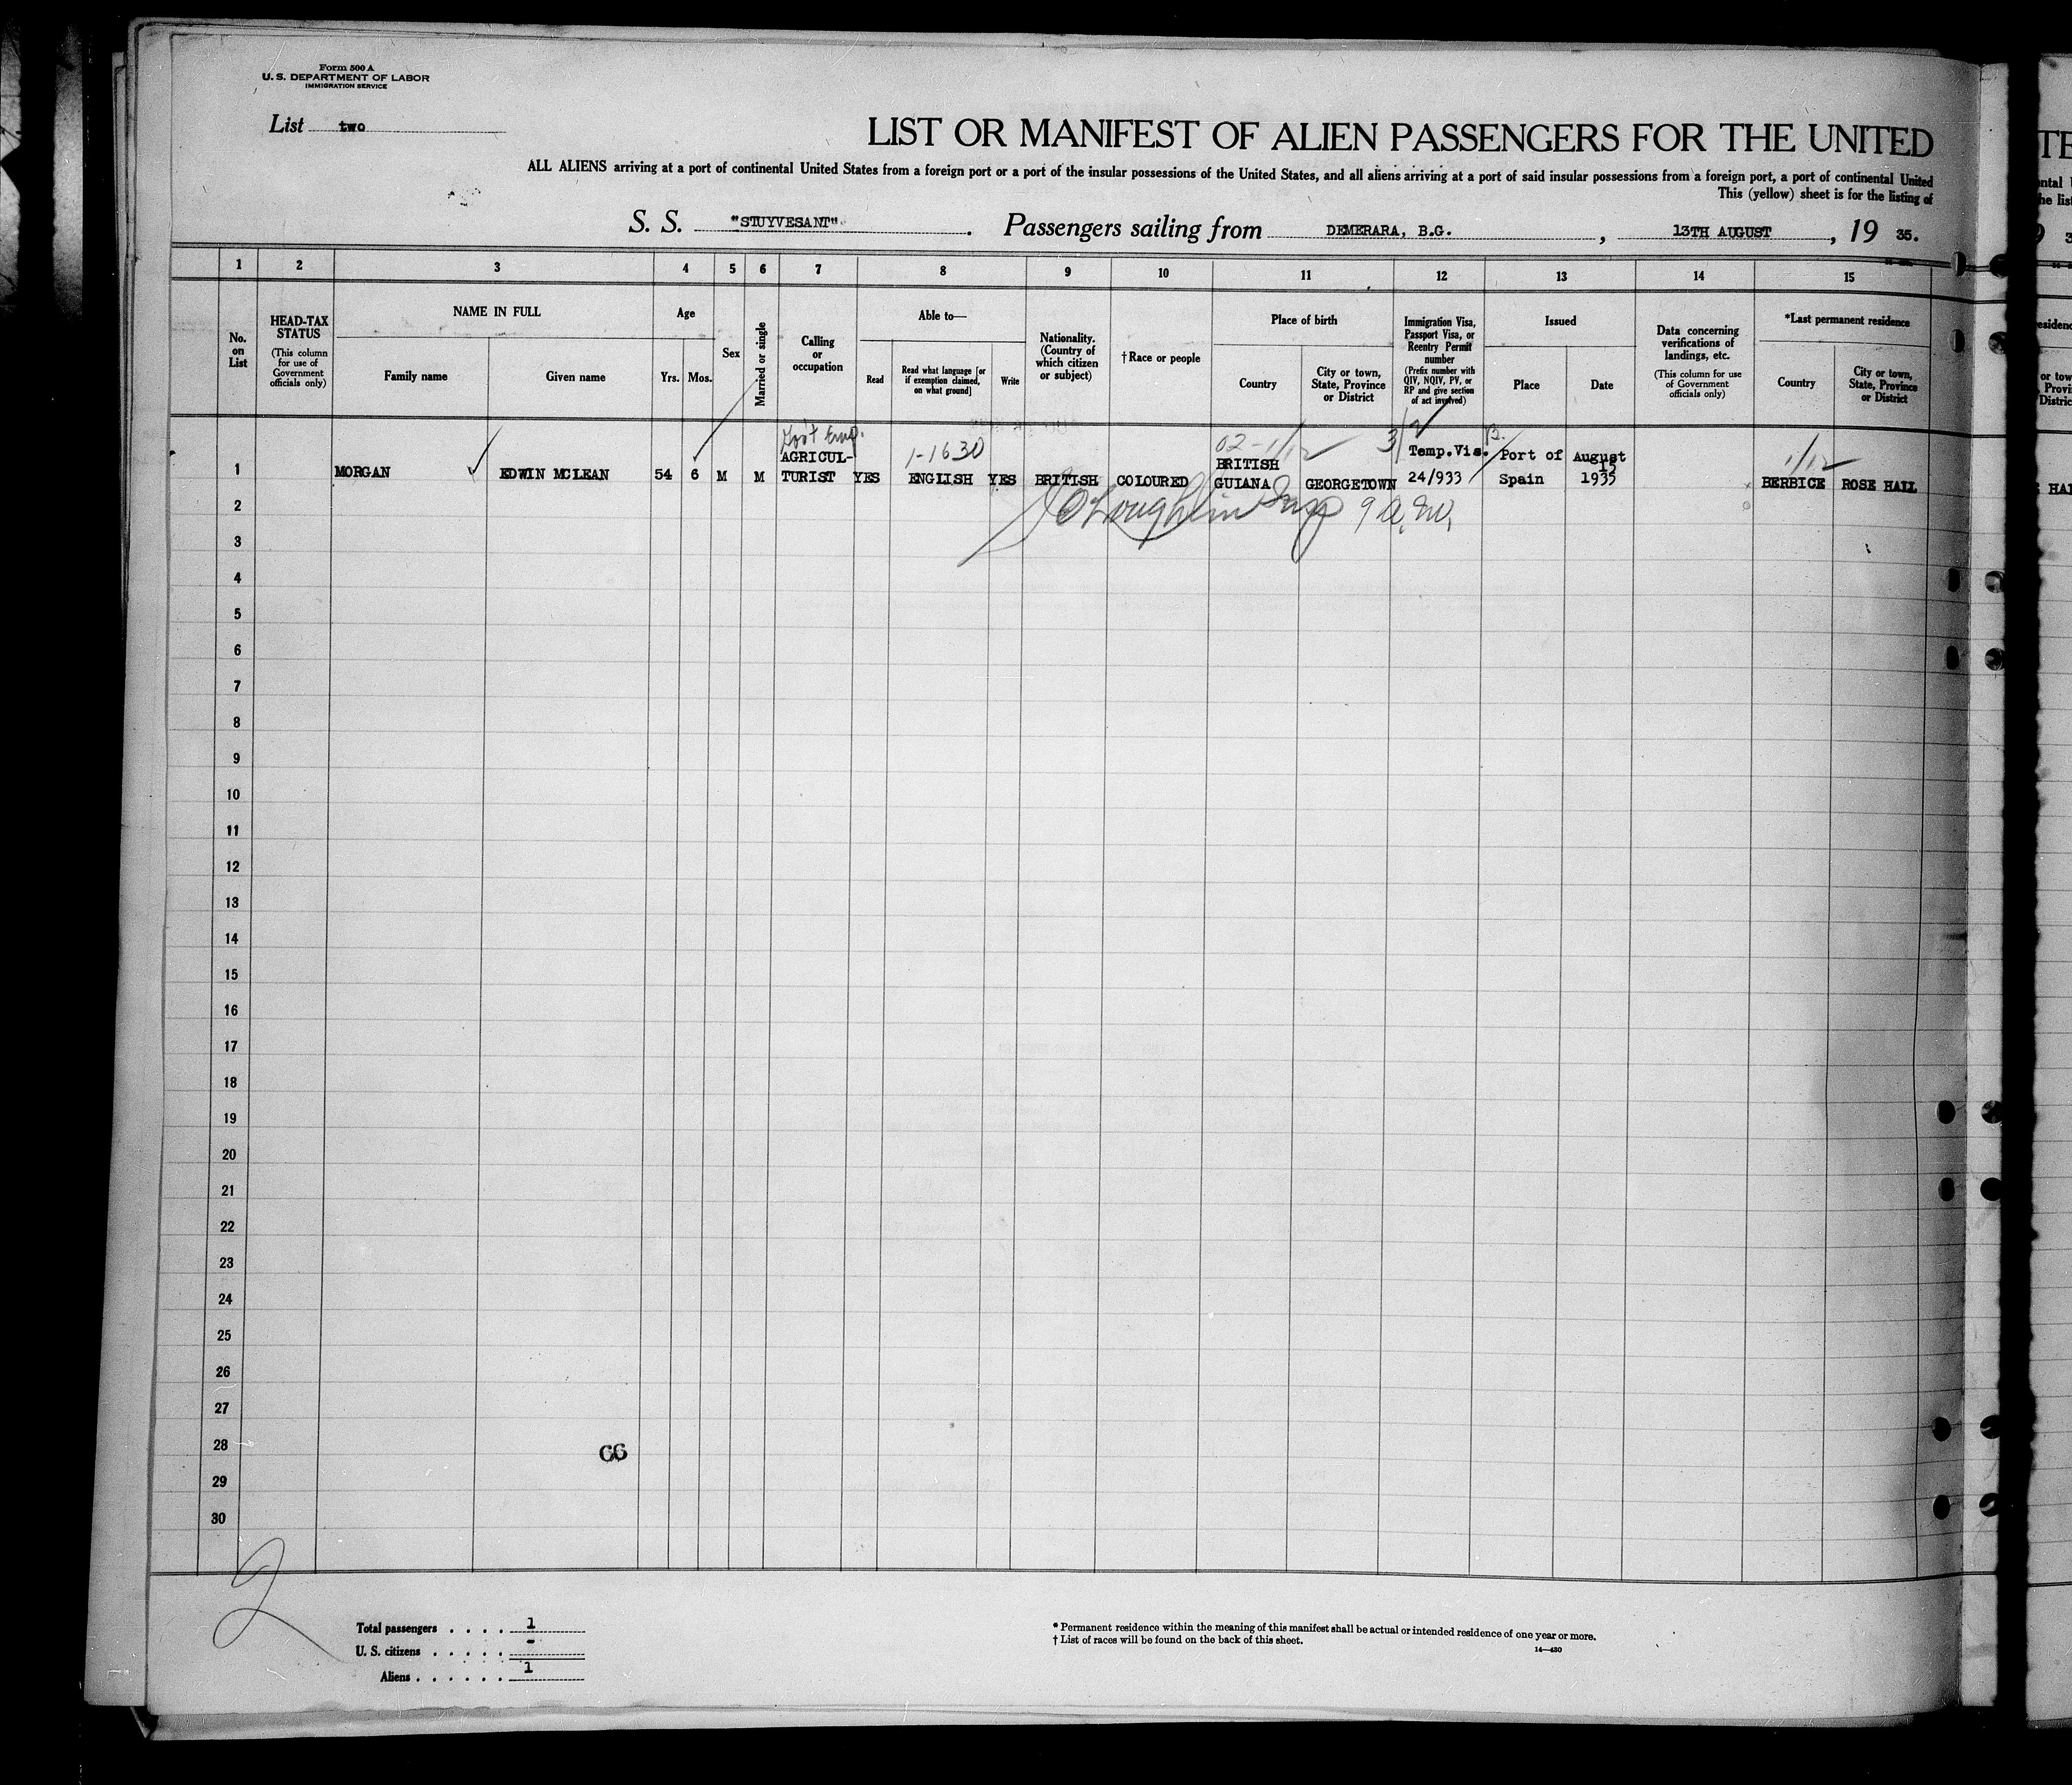 Form 500 A
U. S. DEPARTMENT OF LABOR
IMMIGRATION SERVICE
List two
LIST OR MANIFEST OF ALIEN PASSENGERS FOR THE UNITED
ALL ALIENS arriving at a port of continental United States from a foreign port or a port of the insular possessions of the United States, and all aliens arriving at a port of said insular possessions from a foreign port, a port of continental United
This (yellow) sheet is for the listing of
S. S. "STUYVESANT". Passengers sailing from DEMERARA, B.G., 13TH AUGUST, 19 35.
1 2 3 4 5 6 7 8 9 10 11 12 13 14 15
No. on List
HEAD-TAX STATUS
(This column for use of Government officials only)
NAME IN FULL
Family name
Given name
Age
Yrs. Mos.
Sex
Married or single
Calling or occupation
Able to—
Read
Read what language [or if exemption claimed, on what ground]
Write
Nationality. (Country of which citizen or subject)
†Race or people
Place of birth
Country
City or town, State, Province or District
Immigration Visa, Passport Visa, or Reentry Permit number
(Prefix number with QIV, NQIV, PV, or RP and give section of act involved)
Issued
Place
Date
Data concerning verifications of landings, etc.
(This column for use of Government officials only)
*Last permanent residence
Country
City or town, State, Province or District
1-1630
1 MORGAN EDWIN MCLEAN 54 6 M M AGRICUL-TURIST YES ENGLISH YES BRITISH COLOURED BRITISH GUIANA GEORGETOWN Temp.Vis. 24/933 Port of Spain August 15 1935 BERBICE ROSE HALL
2 O'Loughlin Insp 9 a.m.
3
4
5
6
7
8
9
10
11
12
13
14
15
16
17
18
19
20
21
22
23
24
25
26
27
28
29
30
66
2
Total passengers . . . . 1
U. S. citizens . . . . . -
Aliens . . . . . . 1
* Permanent residence within the meaning of this manifest shall be actual or intended residence of one year or more.
† List of races will be found on the back of this sheet.
14—430